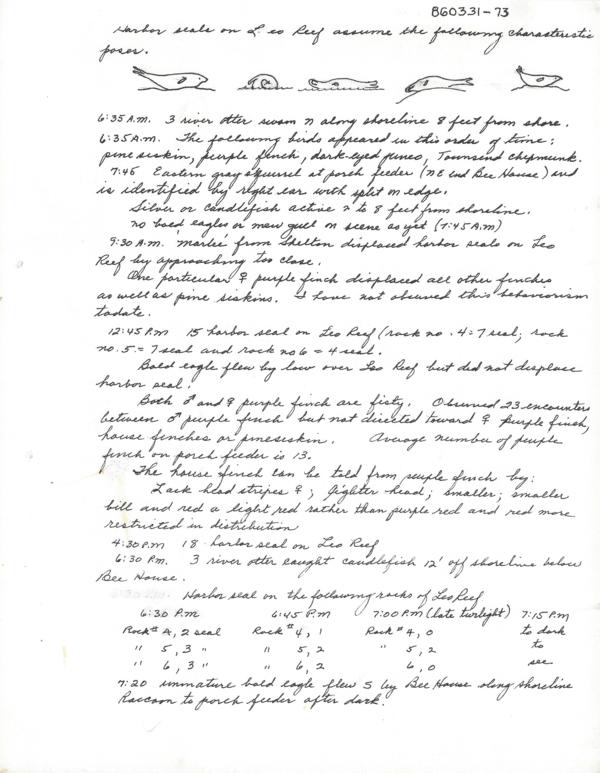 860331-73
Harbor seals on Leo Reef assume the following characteristic
poses.
6:35 A.M. 3 river otter swam n along shoreline 8 feet from shore.
6:35 A.M. The following birds appeared in this order of time:
pine siskin, purple finch, dark-eyed junco, Townsend chipmunk.
7:45 Eastern gray squirrel at porch feeder (N E end Bee House) and
is identified by right ear with split in edge.
Silver or candlefish active 2 to 8 feet from shoreline.
no bald eagles or mew gull on scene as yet (7:45 A.M)
9:30 A.M. 'Marlee' from Shelton displaced harbor seals on Leo
Reef by approaching too close.
One particular ♀ purple finch displaced all other finches
as well as pine siskins. I have not observed this behaviorism
todate.
12:45 P.M 15 harbor seal on Leo Reef (rock no. 4 = 7 seal; rock
no. 5 = 7 seal and rock no 6 = 4 seal.
Bald eagle flew by low over Leo Reef but did not displace
harbor seal.
Both ♂ and ♀ purple finch are fisty. Observed 23 encounters
between ♂ purple finch but not directed toward ♀ purple finch,
house finches or pine siskin. Average number of purple
finch on porch feeder is 13.
The house finch can be told from purple finch by:
Lack head stripes ♀; lighter head; smaller; smaller
bill and red a light red rather than purple red and red more
restricted in distribution
4:30 P.M 18 harbor seal on Leo Reef
6:30 P.M. 3 river otter caught candlefish 12' off shoreline below
Bee House.
Harbor seal on the following rocks of Leo Reef
6:30 P.M 6:45 P.M 7:00 P.M (late twilight) 7:15 P.M
Rock # 4, 2 seal Rock # 4, 1 Rock # 4, 0 to dark
" 5, 3 " " 5, 2 " 5, 2 to
" 6, 3 " " 6, 2 6, 0 see
7:20 immature bald eagle flew S by Bee House along shoreline
Raccoon to porch feeder after dark.